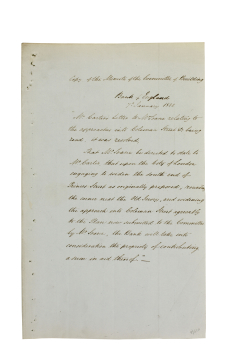 Copy of the Minute of the Committee of Building
Bank of England
January 18
Mr Carter's letter to Mr Soane relating to
the approaches into Coleman Street &c being
read, it was resolved,
That Mr Soane be directed to state to
Mr Carter that upon the City of London
engaging to widen the south end of
Princes Street as originally proposed,
the same next the Old Jewry, and widening
the approach into Coleman Street agreeably
to the Plan now submitted to the Committee
by Mr Soane, the Bank will take into
consideration the propriety of contributing
a sum in aid thereof."